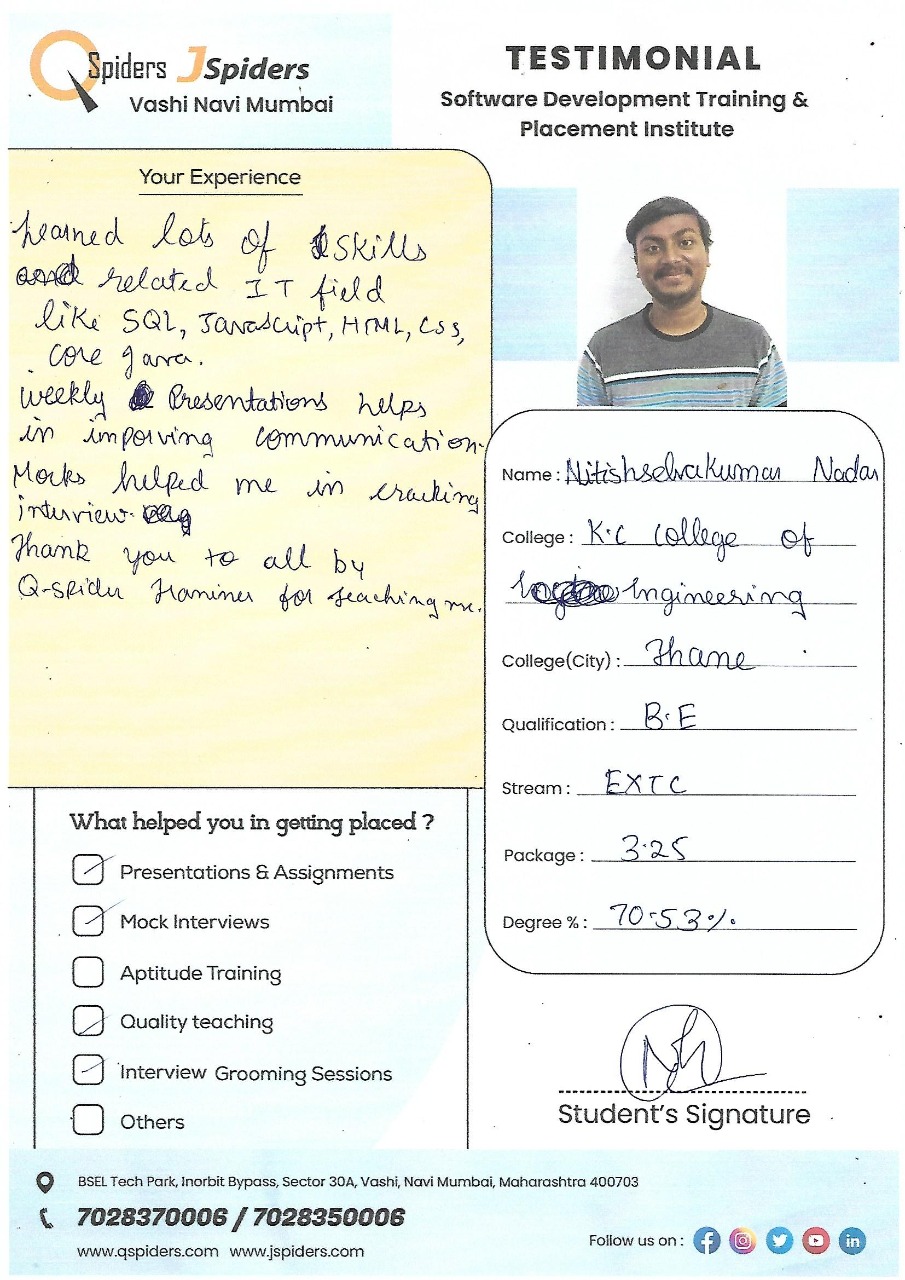 QSpiders JSpiders
Vashi Navi Mumbai
TESTIMONIAL
Software Development Training &
Placement Institute
Your Experience
Learned lots of Skills
and related IT field
like SQL, Javascript, HTML, Css,
core Java.
Weekly Presentations helps
in imporving communication.
Mocks helped me in cracking
interview.
Thank you to all by
Q-spider Traminer for teaching me.
Name : Nitishselvakumar Nadar
College : K.C College of
Engineering
College(City) : Thane
Qualification : B.E
Stream : EXTC
Package : 3.25
Degree % : 70.53%
What helped you in getting placed ?
Presentations & Assignments
Mock Interviews
Aptitude Training
Quality teaching
Interview Grooming Sessions
Others
Student's Signature
BSEL Tech Park, Inorbit Bypass, Sector 30A, Vashi, Navi Mumbai, Maharashtra 400703
7028370006 / 7028350006
www.qspiders.com www.jspiders.com
Follow us on :